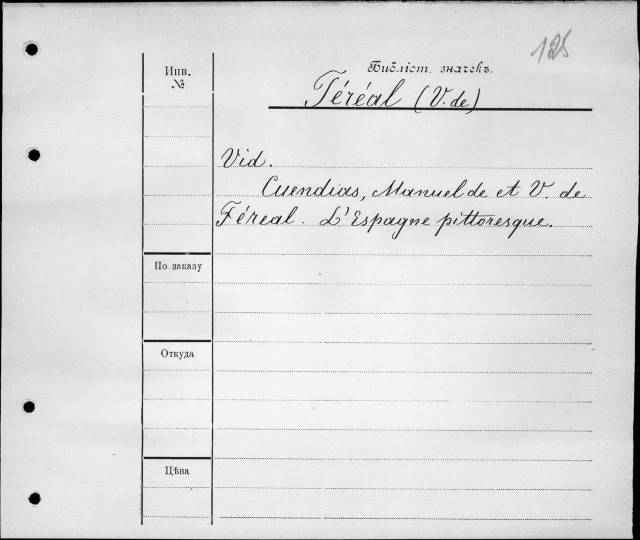 125
Инв.
№
Библіот. значекъ.
Féréal (V. de)
Vid.
Cuendias, Manuel de et V. de
Féreal. L'Espagne pittoresque.
По заказу
Откуда
Цѣна